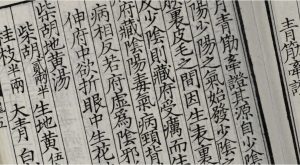 青筋
青筋牽證其源自少陰
陽少陽之氣始發少陰
裏皮毛之間因生表裏
少陰則藏府受癘而生
府藏陰陽毒氣病頸背
病相反若府虛為陰邪
伸䯒中欲折眼中生花
柴胡地黃湯
柴胡 貳兩半 生地黃 伍
桂枝 半兩 大青 白